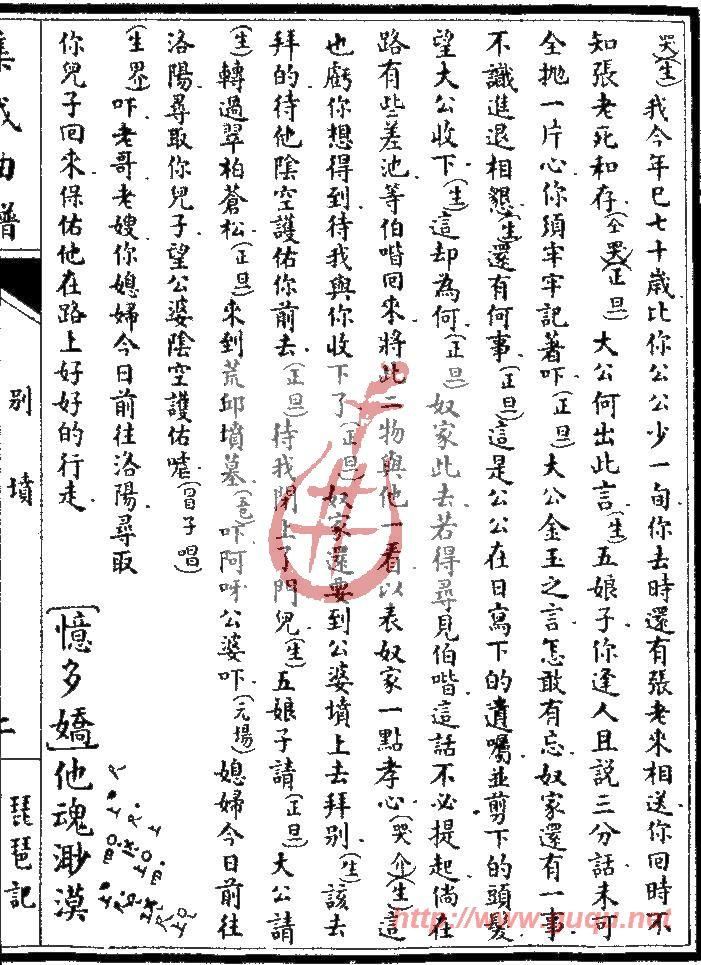 哭(生)我今年已七十歲比你公公少一旬你去時還有張老來相送你回時不
知張老死和存(仝哭)(正旦)大公何出此言(生)五娘子你逢人且説三分話未可
全抛一片心你須牢牢記著吓(正旦)大公金玉之言怎敢有忘奴家還有一事
不識進退相懇(生)還有何事(正旦)這是公公在日寫下的遺囑並剪下的頭髮
望大公收下(生)這却為何(正旦)奴家此去若得尋見伯喈這話不必提起倘在
路有些差池等伯喈回來將此二物與他一看以表奴家一點孝心(哭介)(生)這
也虧你想得到待我與你收下了(正旦)奴家還要到公婆墳上去拜别(生)該去
拜的待他陰空護佑你前去(正旦)待我閉上了門兒(生)五娘子請(正旦)大公請
(生)轉過翠柏蒼松(正旦)來到荒邱墳墓吓阿呀公婆吓(元場)媳婦今日前往
洛陽尋取你兒子望公婆陰空護佑嗄(冒子唱)
(生界)吓老哥老嫂你媳婦今日前往洛陽尋取
你兒子回來保佑他在路上好好的行走
[憶多嬌]他魂渺漠
集成曲譜
别墳
二
琵琶記
http://www.guqu.net